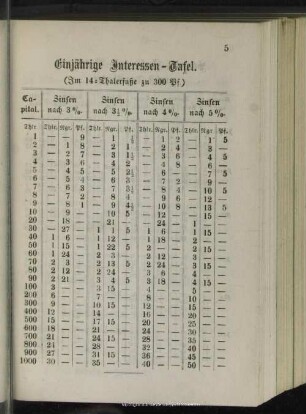 5
Einjährige Interessen-Tafel.
(Im 14-Thalerfuße zu 300 Pf.)
Ca-pital. Zinsen nach 3 %. Zinsen nach 3½ %. Zinsen nach 4 %. Zinsen nach 5 %.
Thlr. Thlr. Ngr. Pf. Thlr. Ngr. Pf. Thlr. Ngr. Pf. Thlr. Ngr. Pf.
1 — — 9 — 1 ½ — 1 2 — 1 5
2 — 1 8 — 2 1 — 2 4 — 3 —
3 — 2 7 — 3 1½ — 3 6 — 4 5
4 — 3 6 — 4 2 — 4 8 — 6 —
5 — 4 5 — 5 2½ — 6 — — 7 5
6 — 5 4 — 6 3 — 7 2 — 9 —
7 — 6 3 — 7 3½ — 8 4 — 10 5
8 — 7 2 — 8 4 — 9 6 — 12 —
9 — 8 1 — 9 4½ — 10 8 — 13 5
10 — 9 — — 10 5 — 12 — — 15 —
20 — 18 — — 21 — — 24 — 1 — —
30 — 27 — 1 1 5 1 6 — 1 15 —
40 1 6 — 1 12 — 1 18 — 2 — —
50 1 15 — 1 22 5 2 — — 2 15 —
60 1 24 — 2 3 — 2 12 — 3 — —
70 2 3 — 2 13 5 2 24 — 3 15 —
80 2 12 — 2 24 — 3 6 — 4 — —
90 2 21 — 3 4 5 3 18 — 4 15 —
100 3 — — 3 15 — 4 — — 5 — —
200 6 — — 7 — — 8 — — 10 — —
300 9 — — 10 15 — 12 — — 15 — —
400 12 — — 14 — — 16 — — 20 — —
500 15 — — 17 15 — 20 — — 25 — —
600 18 — — 21 — — 24 — — 30 — —
700 21 — — 24 15 — 28 — — 35 — —
800 24 — — 28 — — 32 — — 40 — —
900 27 — — 31 15 — 36 — — 45 — —
1000 30 — — 35 — — 40 — — 50 — —